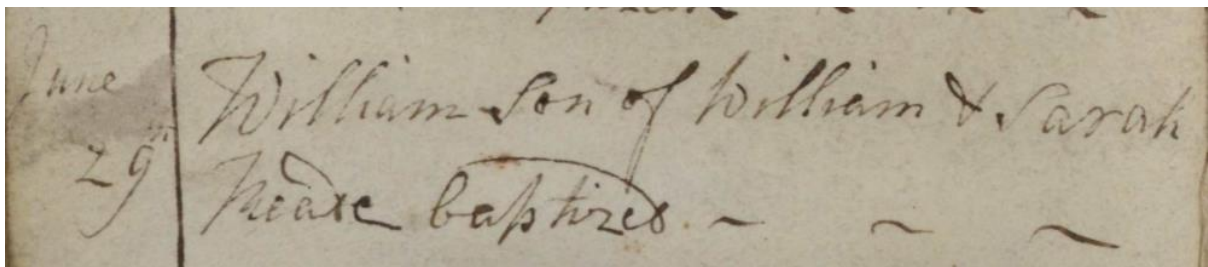 June William Son of William & Sarah
29th baptized